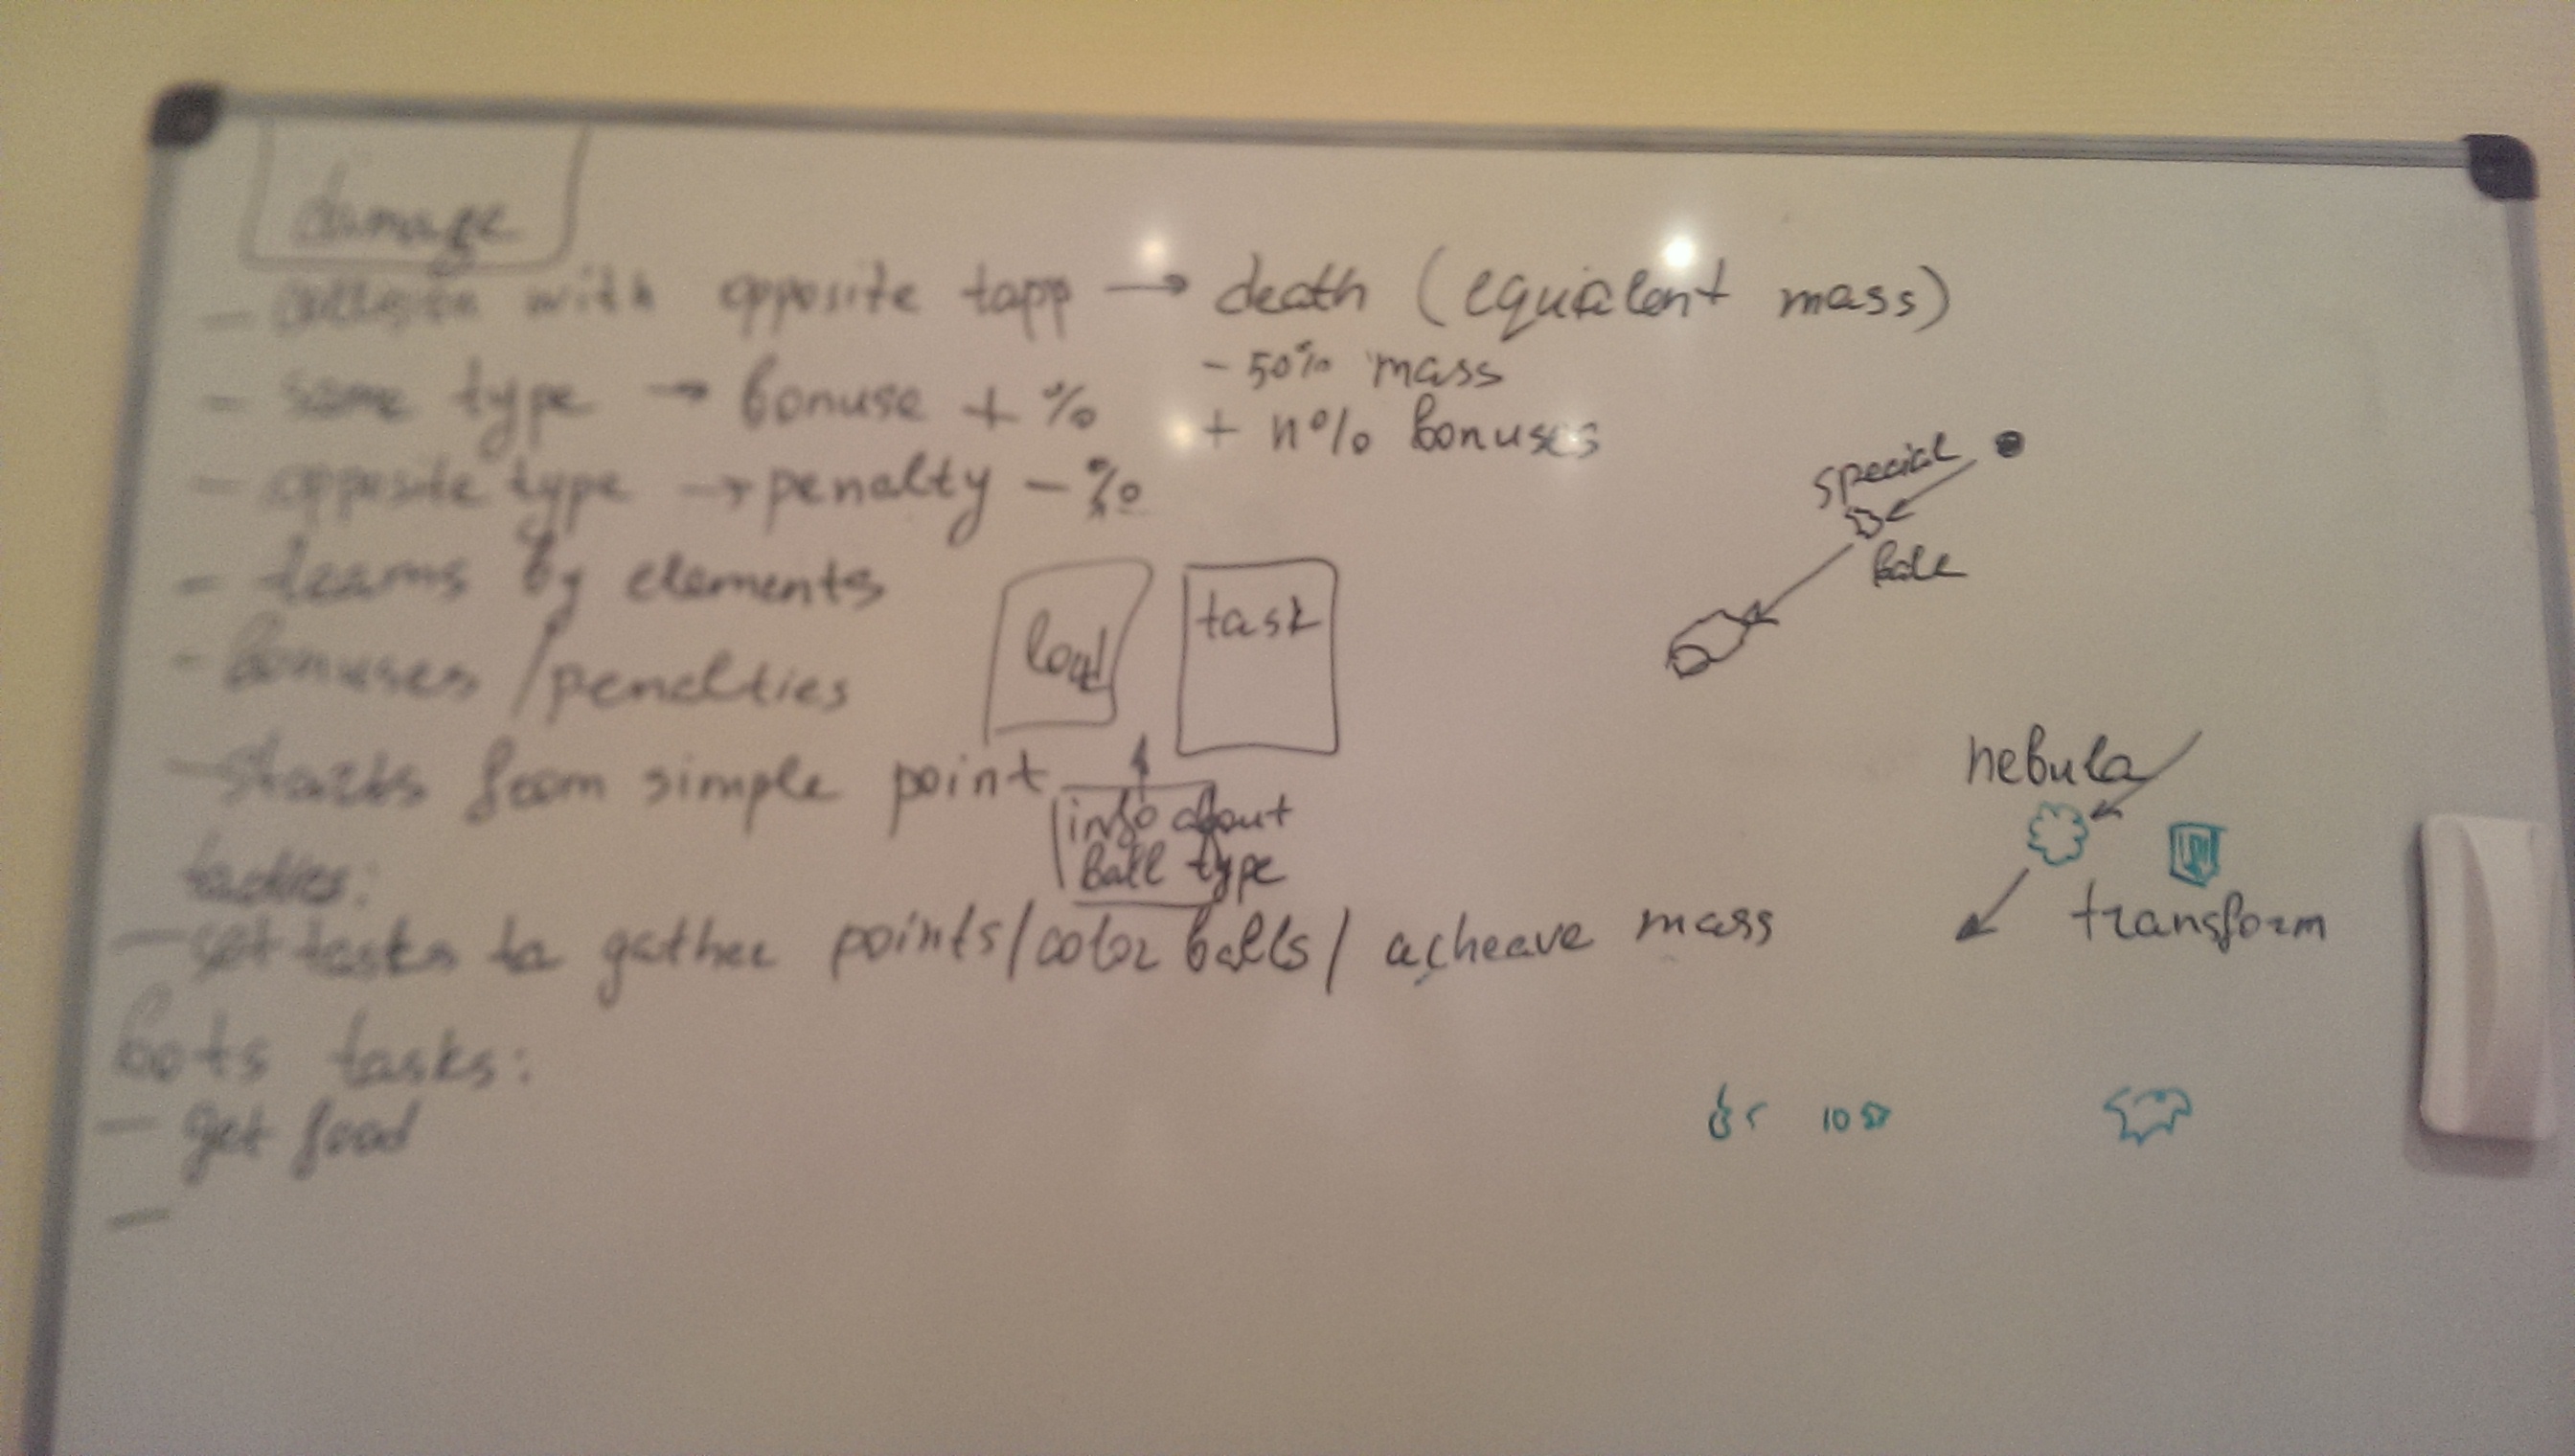 damage
- collision with opposite tapp → death (equialent mass)
- 50% mass
- same type → bonuse + %
+ n% bonuses
- opposite type → penalty - %
- teams by elements
- bonuses / penalties
- starts from simple point
load
task
info about
ball type
tactics:
- set tasks to gather points / color balls / acheave mass
bots tasks:
- get food
-
special
nebula
transform
10